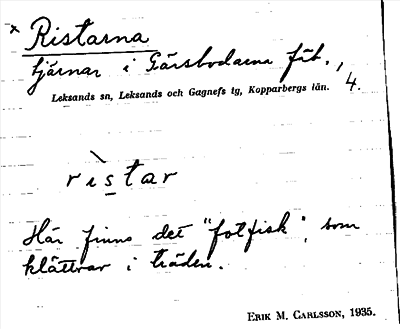 x Ristarna
tjärnar i Gärsbodarna fäb.,
Leksands sn, Leksands och Gagnefs tg, Kopparbergs län. 4.
rìstar
Här finns det "fotfisk", som
klättrar i träden.
ERIK M. CARLSSON, 1935.